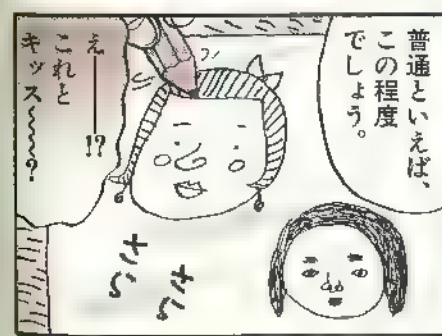 普通といえば、
この程度
でしょう。
え――!?
これと
キッス〜〜〜?
さら
さら